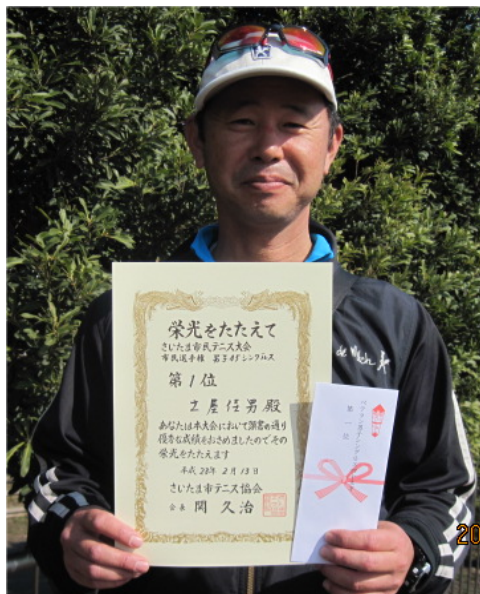 栄光をたたえて
さいたま市民テニス大会
市民選手権 男子45シングルス
第1位
土屋佳男殿
あなたは本大会において頭書の通り
優秀な成績をおさめましたのでその
栄光をたたえます
平成28年2月13日
さいたま市テニス協会
会長 関 久治
第一位
20